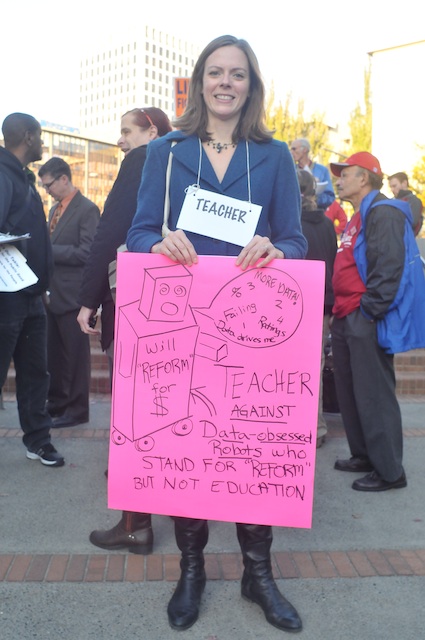 TEACHER
MORE DATA!
% 3
2
Failing
4
1
Ratings
Data drives me
Will
"REFORM"
for
$
TEACHER
AGAINST
Data-obsessed
Robots who
STAND FOR "REFORM"
BUT NOT EDUCATION